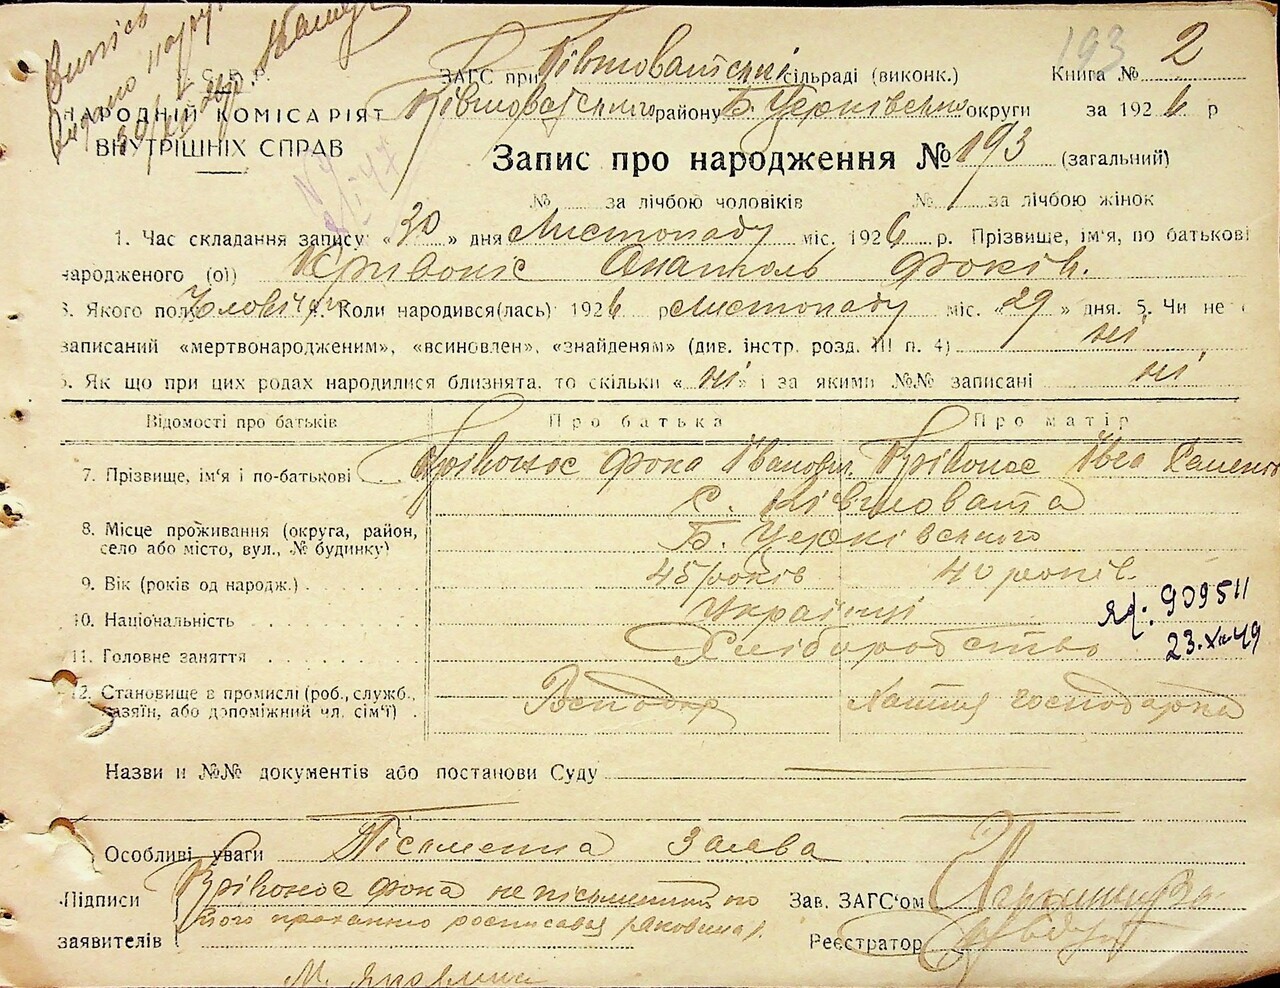 У.С.Р.Р.
НАРОДНІЙ КОМІСАРІЯТ
ВНУТРІШНІХ СПРАВ
193
ЗАГС при Півшоватській сільраді (виконк.) Книга № 2
району Б. Церківської округи за 1926 р
Запис про народження № 193 (загальний)
№ за лічбою чоловіків № за лічбою жінок
1. Час складання запису: «30» дня Листопаду міс. 1926 р. Прізвище, ім'я, по батькові
народженого (ої) Кривоніс Анатоль Фоків.
3. Якого полу Чоловіч. 4. Коли народився(лась) 1926 р Листопаду міс. «29» дня. 5. Чи не є
записаний «мертвонародженим», «всиновлен», «знайденям» (див. інстр. розд. III п. 4) ні
6. Як що при цих родах народилися близнята, то скільки «ні» і за якими №№ записані ні
Відомості про батьків Про батька Про матір
7. Прізвище, ім'я і по-батькові Крівонос Фока Іванович Крівонос
8. Місце проживання (округа, район, село або місто, вул., № будинку) с.
Б. Церківського
9. Вік (років од народж.) 45 років 40 років.
10. Національність Українці
яд: 909511
11. Головне заняття Хліборобство
23.XII-49
12. Становище в промислі (роб., служб., хазяїн, або допоміжний чл. сім'ї) Господар Хатня господарка
Назви и №№ документів або постанови Суду
Особливі уваги Пісьменна заява
Підписи заявителів Крівонос Фока не пісьменний, по
його проханню росписався
Зав. ЗАГС'ом
Реєстратор